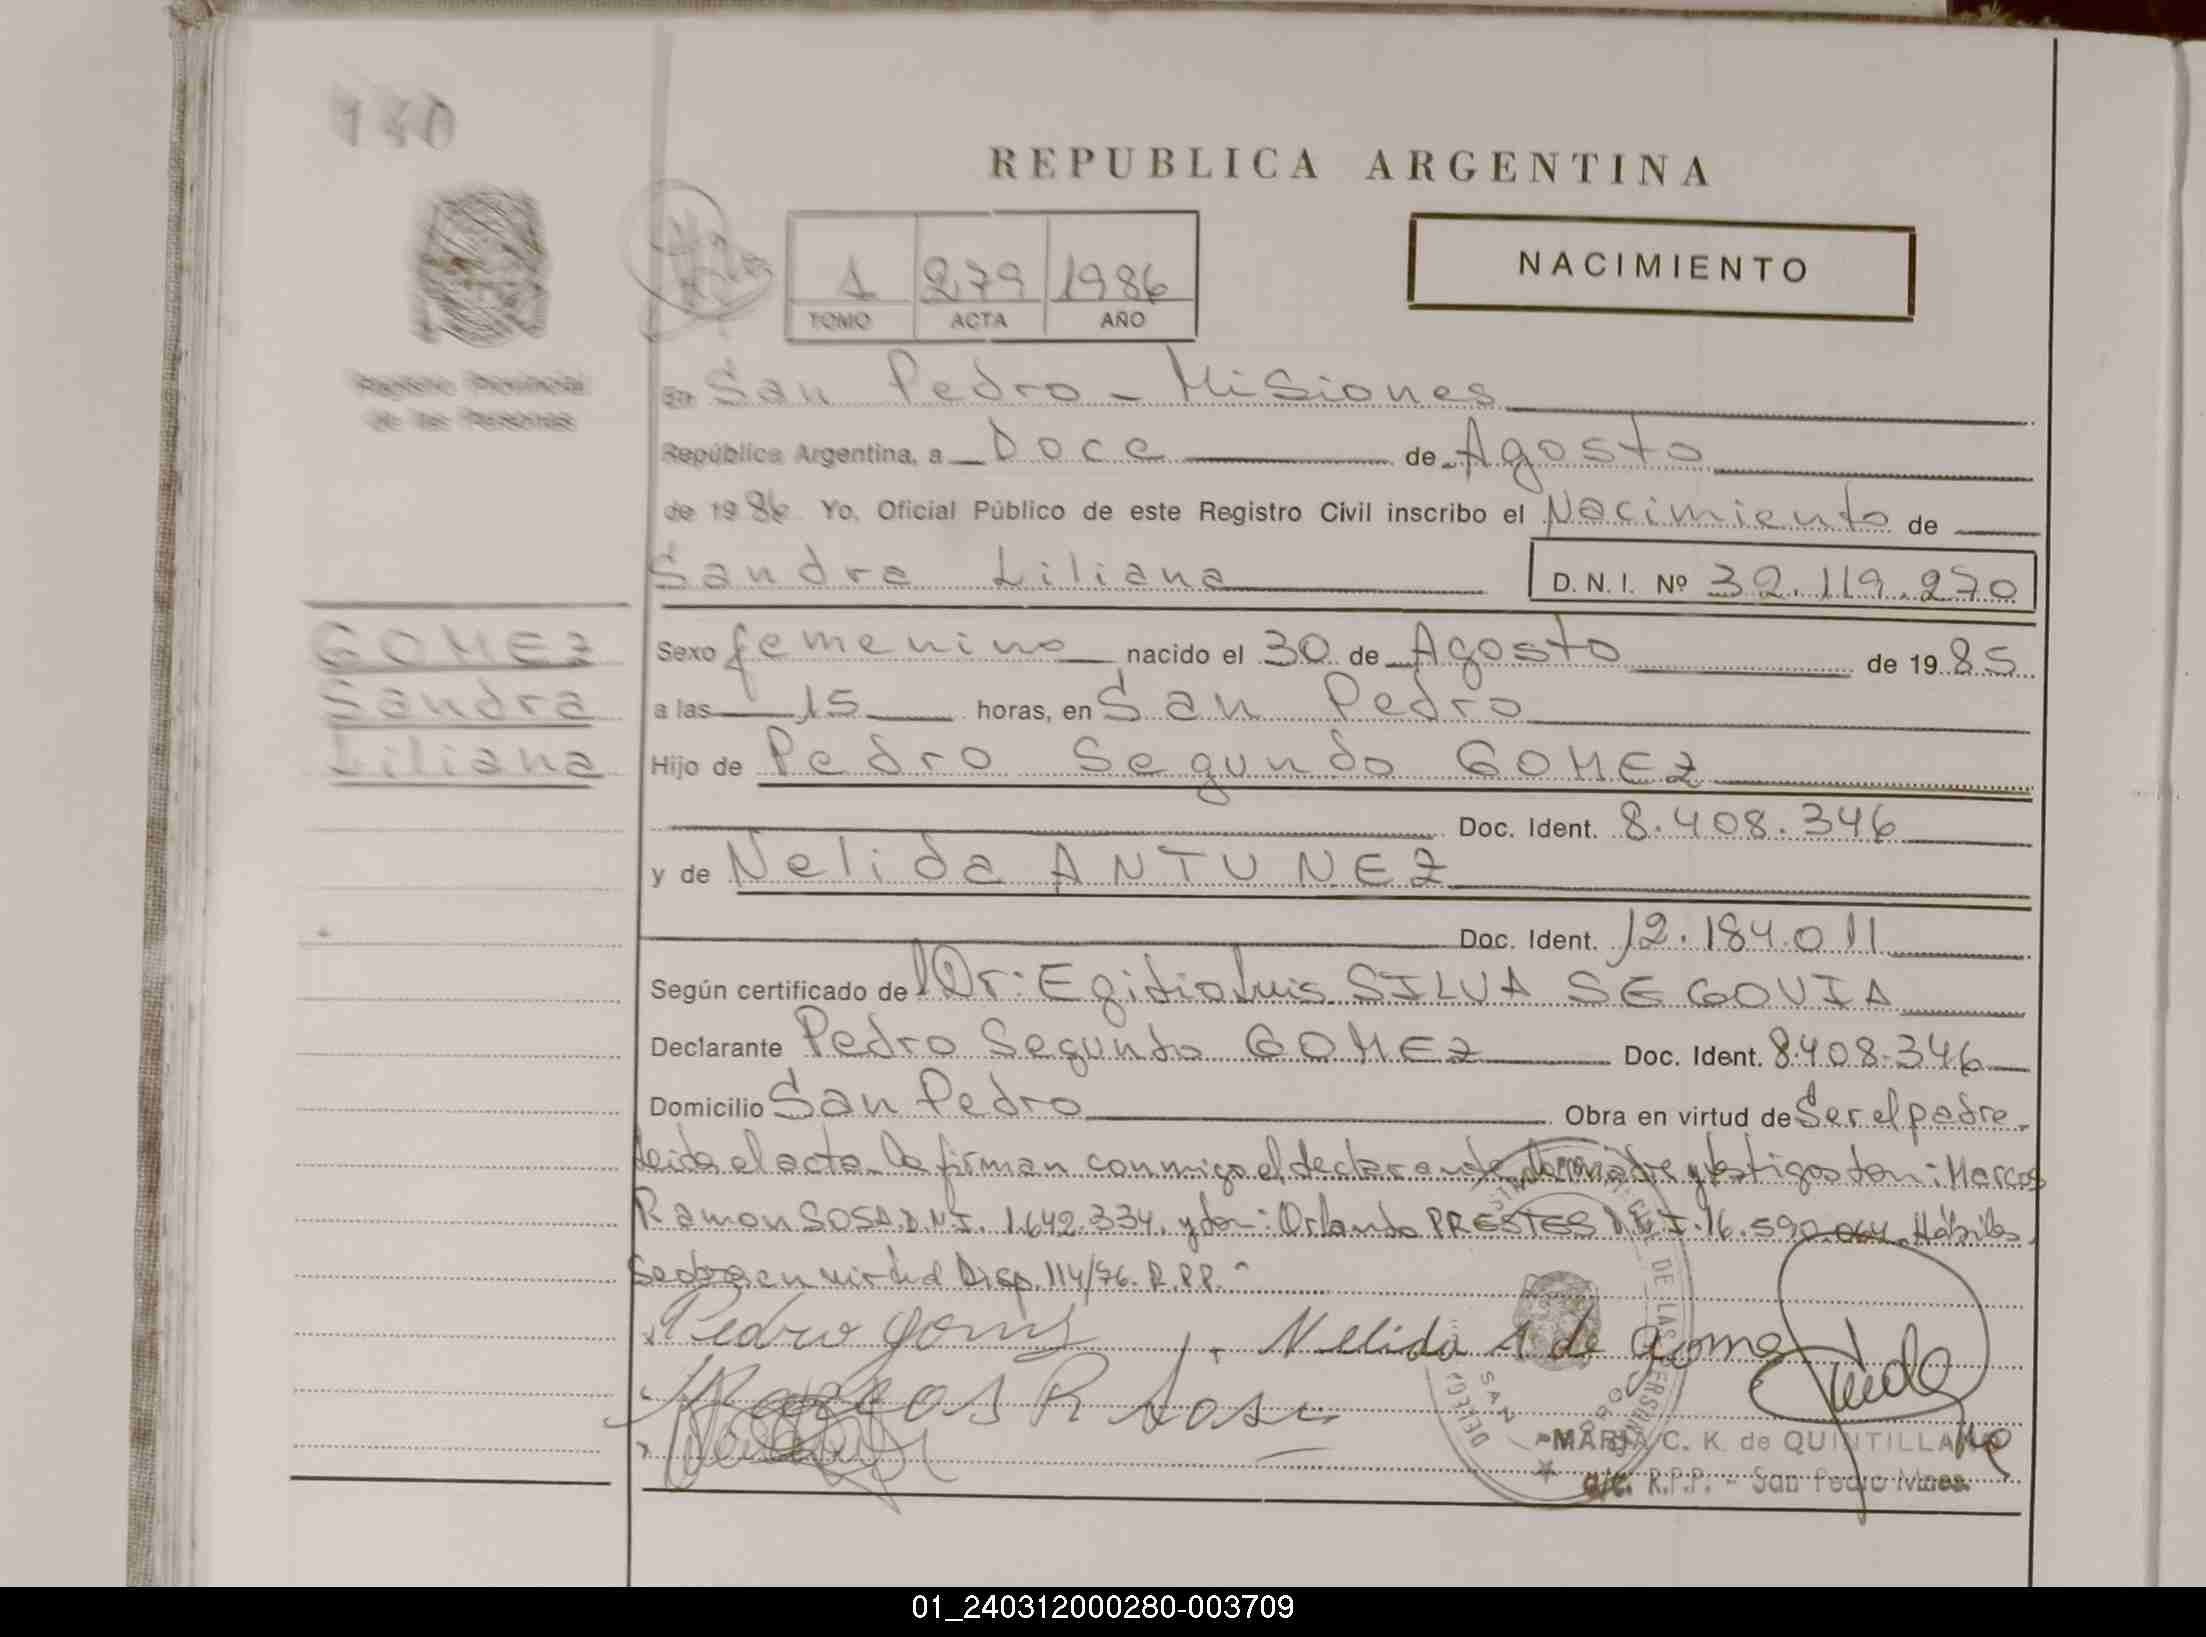 140
REPUBLICA ARGENTINA
NACIMIENTO
1 279 1986
TOMO ACTA AÑO
Registro Provincial
de las Personas
en San Pedro - Misiones
República Argentina, a Doce de Agosto
de 1986 Yo, Oficial Público de este Registro Civil inscribo el Nacimiento de
Sandra Liliana D.N.I. Nº 32.119.270
GOMEZ
Sandra
Liliana
Sexo femenino nacido el 30 de Agosto de 1985
a las 15 horas, en San Pedro
Hijo de Pedro Segundo GOMEZ
Doc. Ident. 8.408.346
y de Nelida ANTUNEZ
Doc. Ident. 12.184.011
Según certificado de Dr: Egidio Luis SILVA SEGOVIA
Declarante Pedro Segundo GOMEZ Doc. Ident. 8.408.346
Domicilio San Pedro Obra en virtud de Ser el padre.
Leida el acta la firman conmigo el declarante la madre y testigos don: Marcos
Ramon SOSA D.N.I. 1.642.334. y don: Orlando PRESTES D.N.I. 16.590.064. Hábiles.
Se obra en virtud Disp. 114/76. R.P.P.
Pedro Gomez Nelida A de Gomez
Marcos R Sosa
SAN PEDRO
MARIA C. K. de QUINTILLAN
a/c. R.P.P. - San Pedro Mnes.
01_240312000280-003709